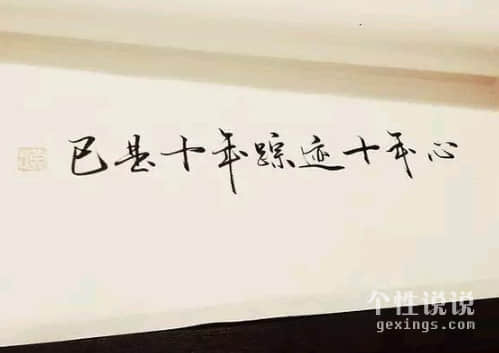 已是十年踪迹十年心
个性说说
gexings.com